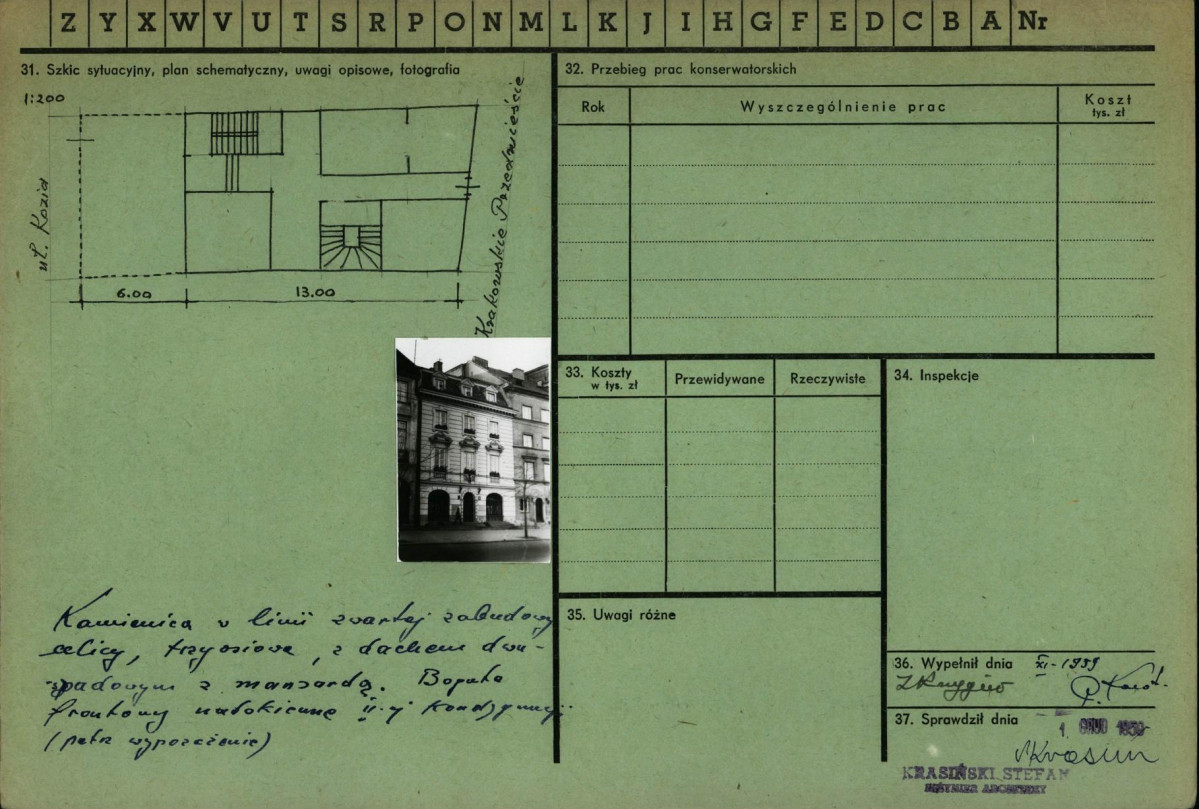 Z Y X W V U T S R P O N M L K J I H G F E D C B A Nr
31. Szkic sytuacyjny, plan schematyczny, uwagi opisowe, fotografia
1:200
ul. Kozia
Krakowskie Przedmieście
6.00 13.00
Kamienica w linii zwartej zabudowy
ulicy, trzyosiowa, z dachem dwu-
spadowym z mansardą. Bogate
frontowy II-ej kondygnacji
(patrz wyposażenie)
32. Przebieg prac konserwatorskich
Rok Wyszczególnienie prac Koszt
tys. zł
33. Koszty
w tys. zł
Przewidywane Rzeczywiste
34. Inspekcje
35. Uwagi różne
36. Wypełnił dnia XI-1959
37. Sprawdził dnia
1. GRUD 1959
KRASIŃSKI STEFAN
INŻYNIER ARCHITEKT